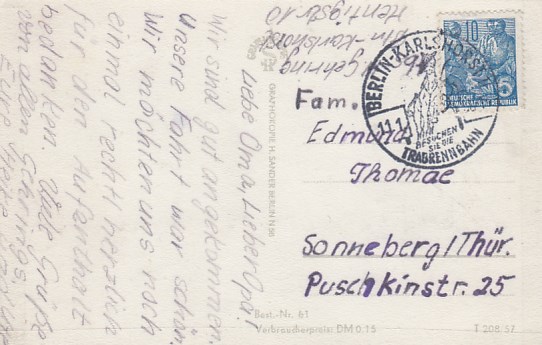 Liebe Oma, Lieber Opa!
Wir sind gut angekommen.
Unsere Fahrt war schön.
Wir möchten uns noch
einmal recht herzlich
für den Aufenthalt
bedanken. Viele Grüße
von allen Gehrings
Eure
Gehring
Bln-Karlshorst
Hentigstr. 10
ORAPHOKOPIE H. SANDER BERLIN N 58
BERLIN-KARLSHORST
11.1
BESUCHEN
SIE DIE
TRABRENNBAHN
10
5
DEUTSCHE
DEMOKRATISCHE REPUBLIK
Fam.
Edmund
Thomae
Sonneberg/Thür.
Puschkinstr. 25
Best.-Nr. 61
Verbraucherpreis: DM 0.15
T 208 57